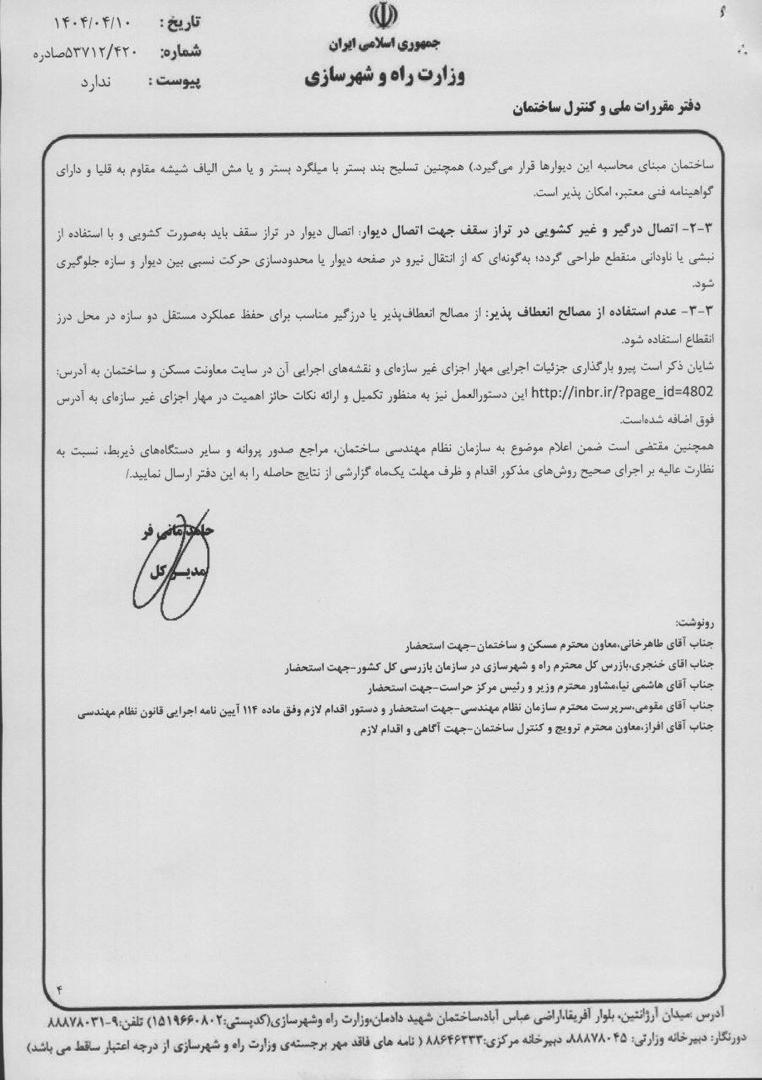 جمهوری اسلامی ایران
وزارت راه و شهرسازی
دفتر مقررات ملی و کنترل ساختمان
تاریخ : ۱۴۰۴/۰۴/۱۰
شماره: ۵۳۷۱۲/۴۲۰صادره
پیوست : ندارد
ساختمان مبنای محاسبه این دیوارها قرار می‌گیرد.) همچنین تسلیح بند بستر با میلگرد بستر و یا مش الیاف شیشه مقاوم به قلیا و دارای
گواهینامه فنی معتبر، امکان پذیر است.
۲-۳- اتصال درگیر و غیر کشویی در تراز سقف جهت اتصال دیوار: اتصال دیوار در تراز سقف باید به‌صورت کشویی و با استفاده از
نبشی یا ناودانی منقطع طراحی گردد؛ به‌گونه‌ای که از انتقال نیرو در صفحه دیوار یا محدودسازی حرکت نسبی بین دیوار و سازه جلوگیری
شود.
۳-۳- عدم استفاده از مصالح انعطاف پذیر: از مصالح انعطاف‌پذیر یا درزگیر مناسب برای حفظ عملکرد مستقل دو سازه در محل درز
انقطاع استفاده شود.
شایان ذکر است پیرو بارگذاری جزئیات اجرایی مهار اجزای غیر سازه‌ای و نقشه‌های اجرایی آن در سایت معاونت مسکن و ساختمان به آدرس:
http://inbr.ir/?page_id=4802 این دستورالعمل نیز به منظور تکمیل و ارائه نکات حائز اهمیت در مهار اجزای غیر سازه‌ای به آدرس
فوق اضافه شده‌است.
همچنین مقتضی است ضمن اعلام موضوع به سازمان نظام مهندسی ساختمان، مراجع صدور پروانه و سایر دستگاه‌های ذیربط، نسبت به
نظارت عالیه بر اجرای صحیح روش‌های مذکور اقدام و ظرف مهلت یک‌ماه گزارشی از نتایج حاصله را به این دفتر ارسال نمایید./
حامد مانی فر
مدیــر کل
رونوشت:
جناب آقای طاهرخانی،معاون محترم مسکن و ساختمان-جهت استحضار
جناب اقای خنجری،بازرس کل محترم راه و شهرسازی در سازمان بازرسی کل کشور-جهت استحضار
جناب آقای هاشمی نیا،مشاور محترم وزیر و رئیس مرکز حراست-جهت استحضار
جناب آقای مقومی،سرپرست محترم سازمان نظام مهندسی-جهت استحضار و دستور اقدام لازم وفق ماده ۱۱۴ آیین نامه اجرایی قانون نظام مهندسی
جناب آقای افراز،معاون محترم ترویج و کنترل ساختمان-جهت آگاهی و اقدام لازم
۴
آدرس :میدان آرژانتین، بلوار آفریقا،اراضی عباس آباد،ساختمان شهید دادمان،وزارت راه وشهرسازی(کدپستی:۱۵۱۹۶۶۰۸۰۲) تلفن:۹-۸۸۸۷۸۰۳۱
دورنگار: دبیرخانه وزارتی: ۸۸۸۷۸۰۴۵، دبیرخانه مرکزی:۸۸۶۴۶۲۳۳ ( نامه های فاقد مهر برجسته‌ی وزارت راه و شهرسازی از درجه اعتبار ساقط می باشد)